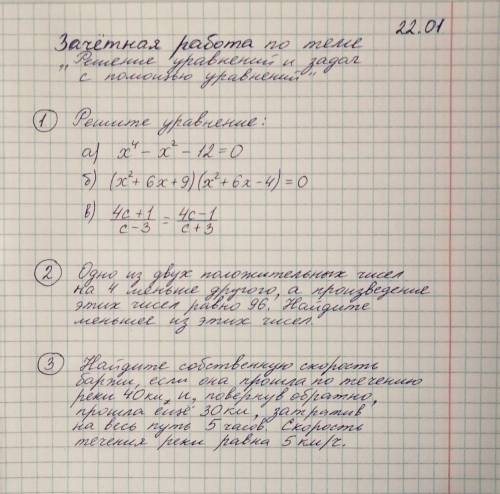 22.01
Зачётная работа по теме
„Решение уравнений и задач
с помощью уравнений"
1 Решите уравнение:
а) x⁴ - x² - 12 = 0
б) (x² + 6x + 9)(x² + 6x - 4) = 0
в) (4c + 1)/(c - 3) = (4c - 1)/(c + 3)
2 Одно из двух положительных чисел
на 4 меньше другого, а произведение
этих чисел равно 96. Найдите
меньшее из этих чисел.
3 Найдите собственную скорость
баржи, если она прошла по течению
реки 40 км, и, повернув обратно,
прошла ещё 30 км, затратив
на весь путь 5 часов. Скорость
течения реки равна 5 км/ч.